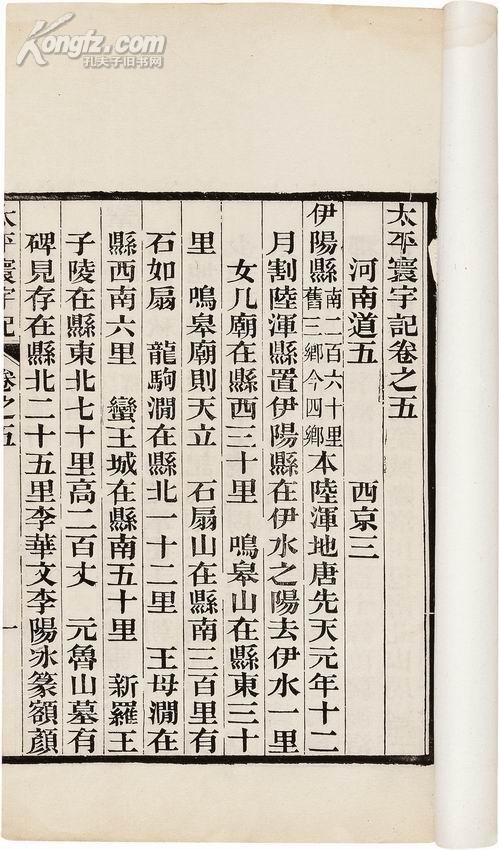 Kongfz.com
孔夫子旧书网
太平寰宇記卷之五
河南道五　西京三
伊陽縣南二百六十里舊三鄉今四鄉本陸渾地唐先天元年十二
月割陸渾縣置伊陽縣在伊水之陽去伊水一里
女几廟在縣西三十里　鳴皋山在縣東三十
里　鳴皋廟則天立　石扇山在縣南三百里有
石如扇　龍駒澗在縣北一十二里　王母澗在
縣西南六里　蠻王城在縣南五十里　新羅王
子陵在縣東北七十里高二百丈　元魯山墓有
碑見存在縣北二十五里李華文李陽冰篆額顏
太平寰宇記　卷之五　一